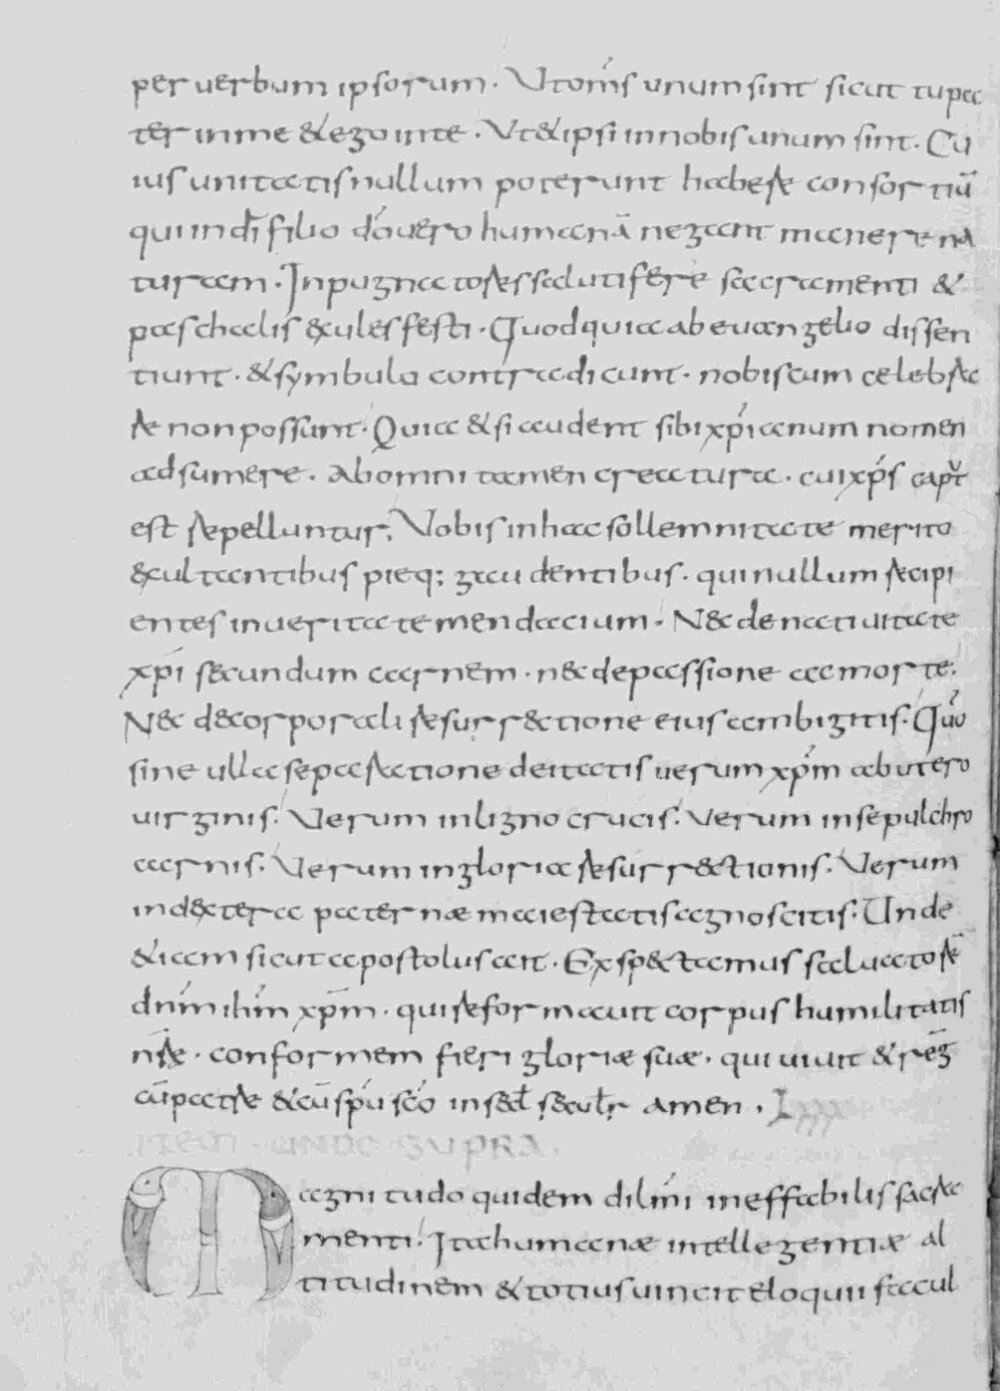 per uerbum ipsorum. Ut om̅s unum sint sicut tu pa
ter in me & ego in te. Ut & ipsi in nobis unum sint. Cu
ius unitatis nullum poterunt habere consortiū
qui in dī filio dō uero humanā negant manere na
turam. Inpugnatores salutifere sacramenti &
paschalis exules festi. Quod quia ab euangelio dissen
tiunt. & symbulo contradicunt. nobiscum celebra
re non possunt. Quia & si audent sibi xp̅ianum nomen
adsumere. Ab omni tamen creatura. cui xp̅s caput
est repelluntur; Vobis in hac sollemnitate merito
exultantibus pieq; gaudentibus. qui nullum recipi
entes in ueritate mendacium. Nec de natiuitate
xp̅i secundum carnem. nec de passione ac morte.
Nec de corporali resurrectione eius ambigitis. Quō
sine ulla separatione deitatis uerum xp̅m ab utero
uirginis. Verum in ligno crucis. Verum in sepulchro
carnis. Verum in gloria resurrectionis. Verum
in dextera paternæ maiestatis agnoscitis. Unde
& iam sicut apostolus ait. Exspectamus saluatorē
dn̅m ih̅m xp̅m. qui reformauit corpus humilitatis
n̅re. conformem fieri gloriæ suæ. qui uiuit & reḡ
cū patre & cū sp̅u sc̅o in sęcl sęculr amen. Lxxx
ITEM UNDE SUPRA.
Magnitudo quidem dilm̅i ineffabilis sacra
menti. Ita humanæ intellegentiæ al
titudinem & totius uincit eloquii facul